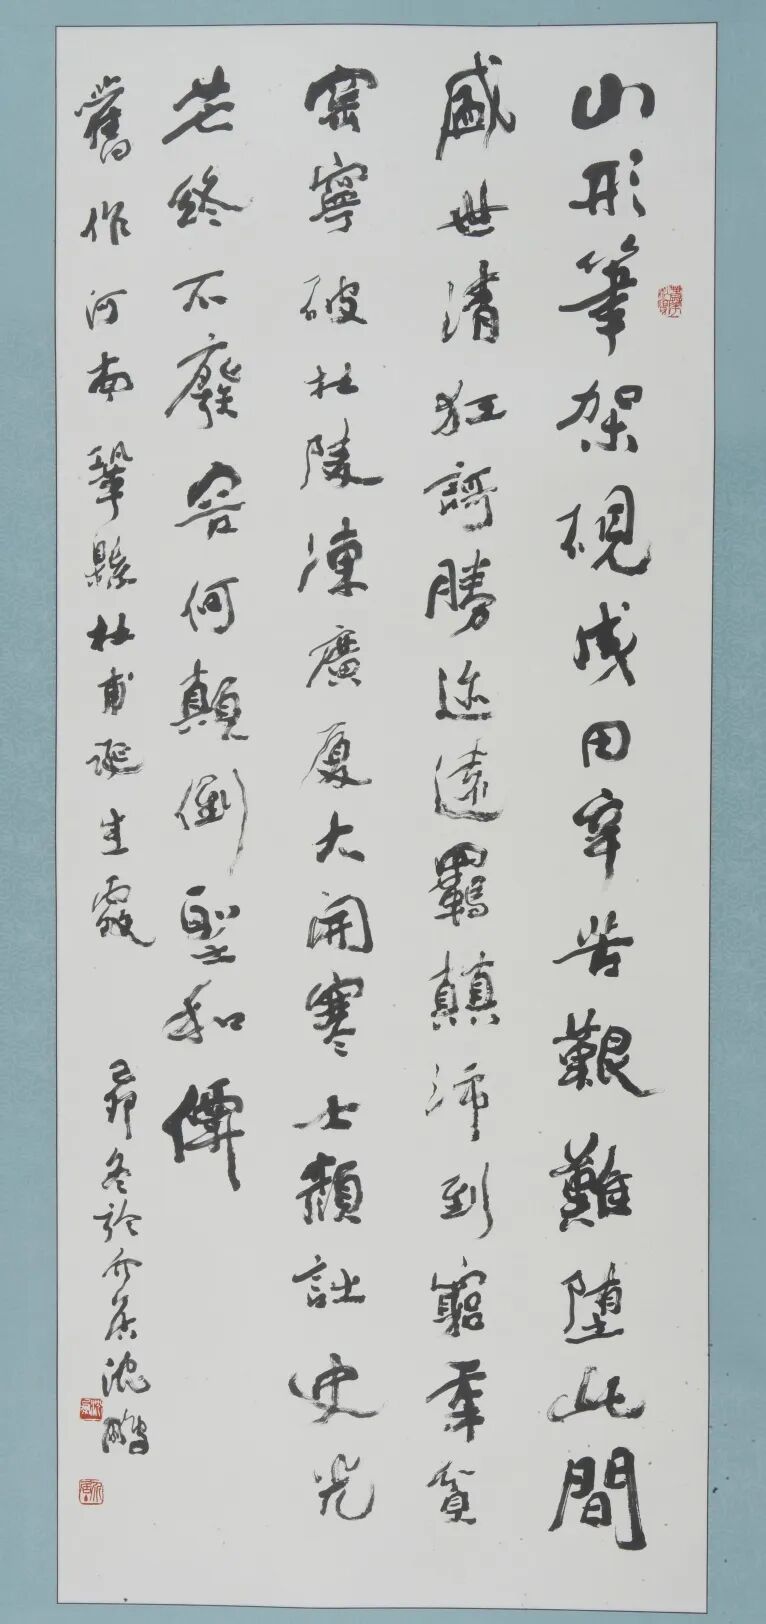 山形筆架硯成田辛苦艱難墮此間
盛世清狂謌勝迹遠羈顛沛到窮年貧
窯寧破杜陵凍廣廈大開寒士顏詩史光
芒終不廢容何顛倒聖和僊
舊作河南鞏縣杜甫誕生處 己卯冬於介居沈鵬